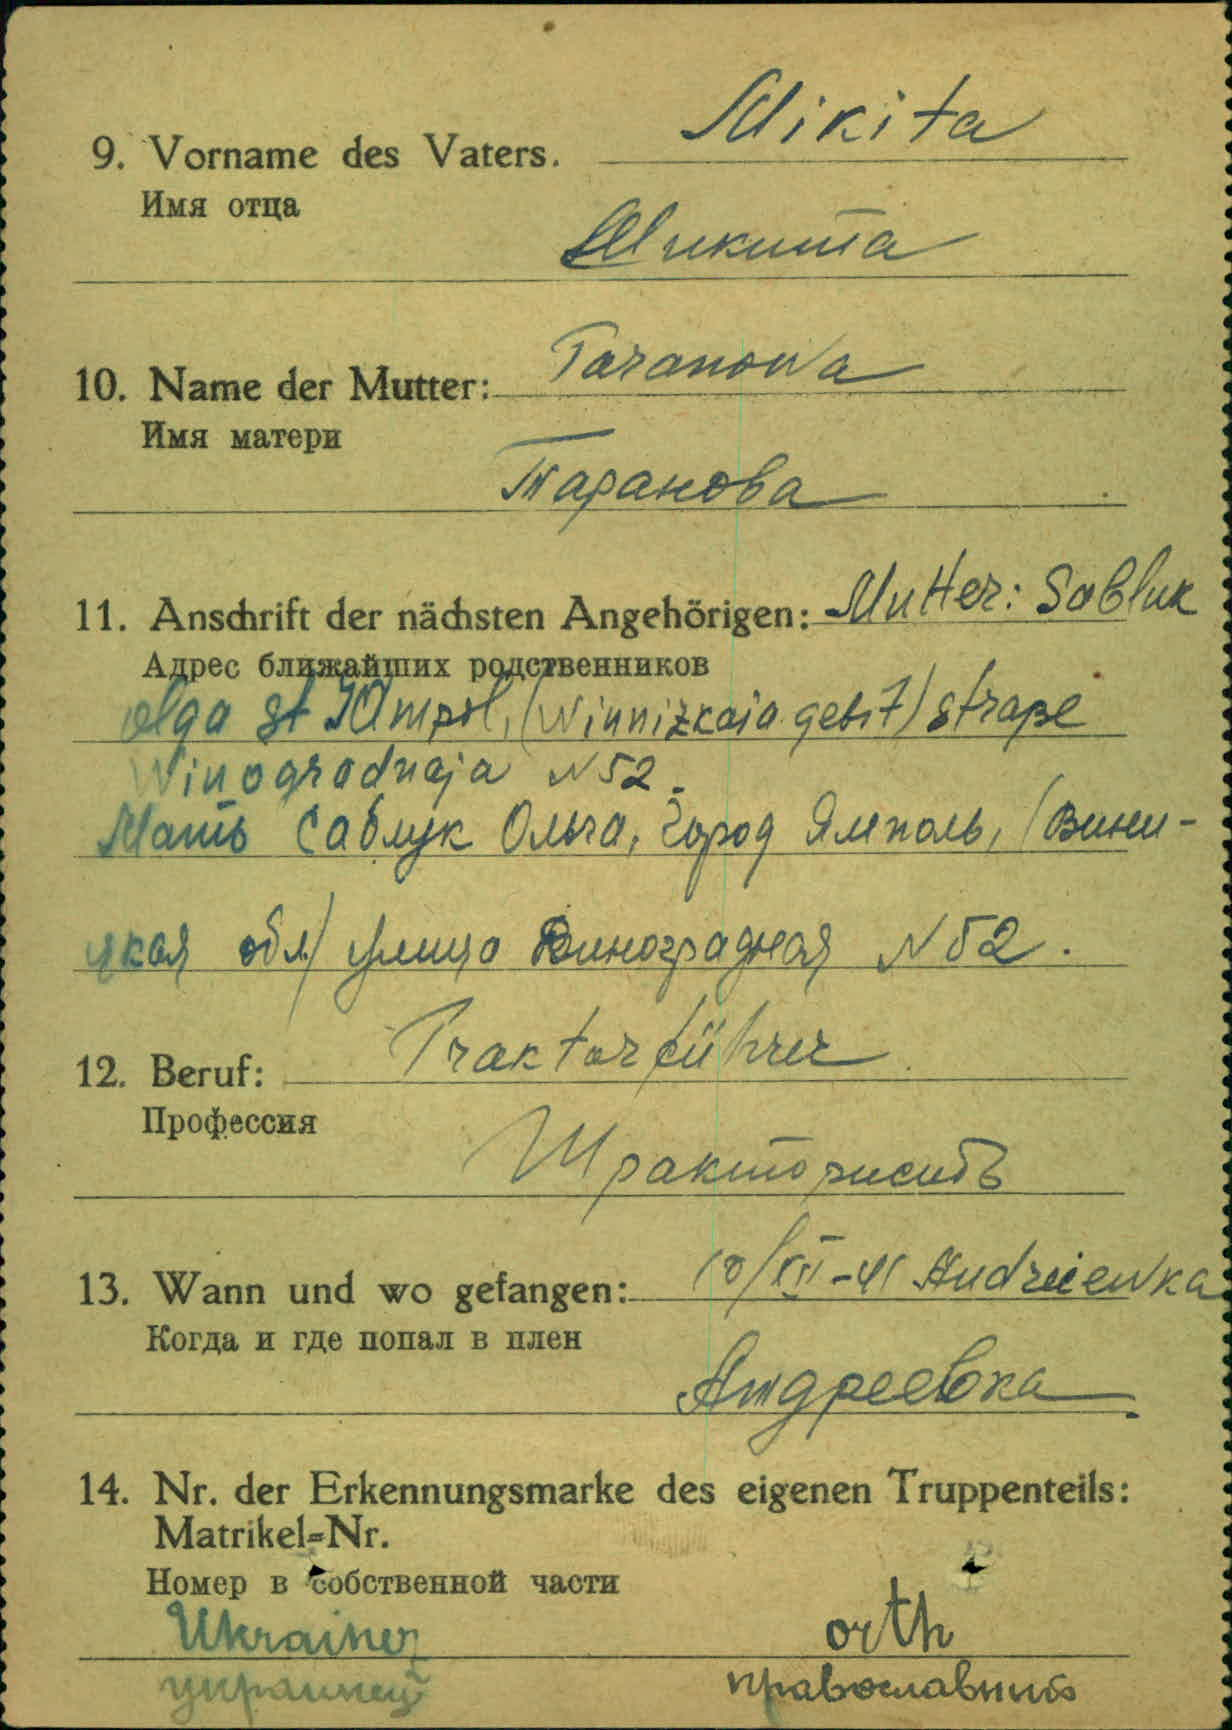 Mikita
9. Vorname des Vaters.
Имя отца
Микита
Taranowa
10. Name der Mutter:
Имя матери
Таранова
11. Anschrift der nächsten Angehörigen: Mutter: Sabluk
Адрес ближайших родственников
olga st JAmpol, (Winnizkaia gebit) straße
Winogradnaja N 52.
Мать Саблук Ольга, город Ямполь, (Вини-
цкая обл) улица Виноградная N 52.
12. Beruf: Traktorführer
Профессия
Трактористъ
13. Wann und wo gefangen: 10/XII-41 Andreiewka
Когда и где попал в плен
Андреевка
14. Nr. der Erkennungsmarke des eigenen Truppenteils:
Matrikel=Nr.
Номер в собственной части
Ukrainer orth
украинец православний